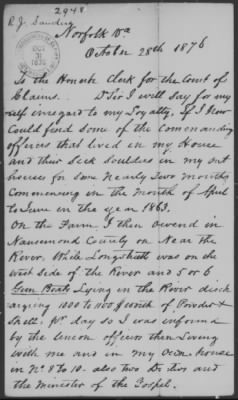 2948
R. J. Sanders
OCT
31
1876
Norfolk Va
October 28th 1876
To the Honorb Clerk for the Court of
Claims. D Sir I will Say for my
self inregard to my Loyalty, if I Now
Could find Some of the Commanding
officers that lived in my House
and their Sick Souldies in my out
houses for Some Nearly Two Months
Commencing in the Month of April
to June in the year 1863.
On the Farm I then owend in
Nansemond County on Near the
River. While Longstreth was on the
west Side of the River and 5 or 6
Gun Boats Lying in the River disch
arging 1000 to 1100 $ worth of Powder &
Shell. Pr day so I was informd
by the officers then Living
with me and in my Own house
in No 8 to 10. also two Drs
and the Minister of the Gospel.